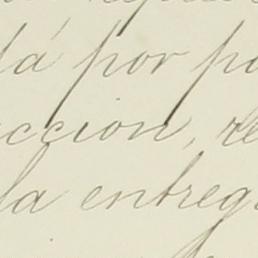 dá por po
cción, re
la entreg